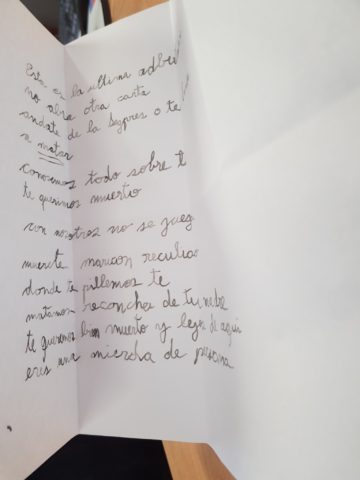 Esta es la ultima adber
no abra otra carta
andate de la begpres o te
a matar
conosemos todo sobre t
te queremos muerto
con nosotros no se jueg
muerete maricon reculiao
donde te pillemos te
matamos reconcha de tu
te queremos bien muerto y lejos de aqui
eres una miercha de persona